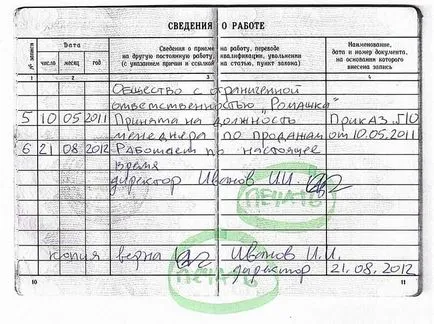 СВЕДЕНИЯ О РАБОТЕ
№ записи
Дата
число
месяц
год
Сведения о приеме на работу, переводе
на другую постоянную работу, квалификации, увольнении
(с указанием причин и ссылкой на статью, пункт закона)
Наименование,
дата и номер документа,
на основании которого
внесена запись
1 2 3 4
Общество с ограниченной
ответственностью "Ромашка"
5 10 05 2011 Принята на должность Приказ
менеджера по продажам от 10.05.2011
6 21 08 2012 Работает по настоящее
время
директор Иванов И.И.
ПЕЧАТЬ
копия верна Иванов И.И.
ПЕЧАТЬ директор 21.08.2012
10 11